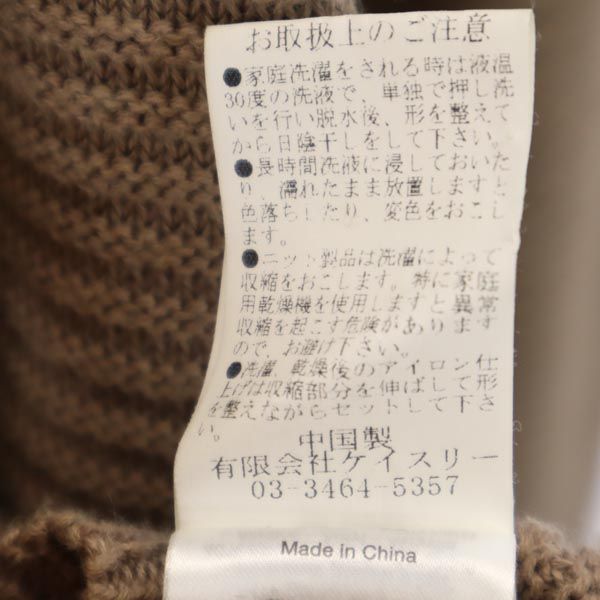 お取扱上のご注意
●家庭洗濯をされる時は液温
30度の洗液で、単独で押し洗
いを行い脱水後、形を整えて
から日陰干しをして下さい。
●長時間洗液に浸しておいた
り、濡れたまま放置しますと
色落ちしたり、変色をおこし
ます。
●ニット製品は洗濯によって
収縮をおこします。特に家庭
用乾燥機を使用しますと異常
収縮を起こす危険があります
ので、お避け下さい。
●洗濯、乾燥後のアイロン仕
上げは収縮部分を伸ばして形
を整えながらセットして下さ
い。
中国製
有限会社ケイスリー
03-3464-5357
Made in China